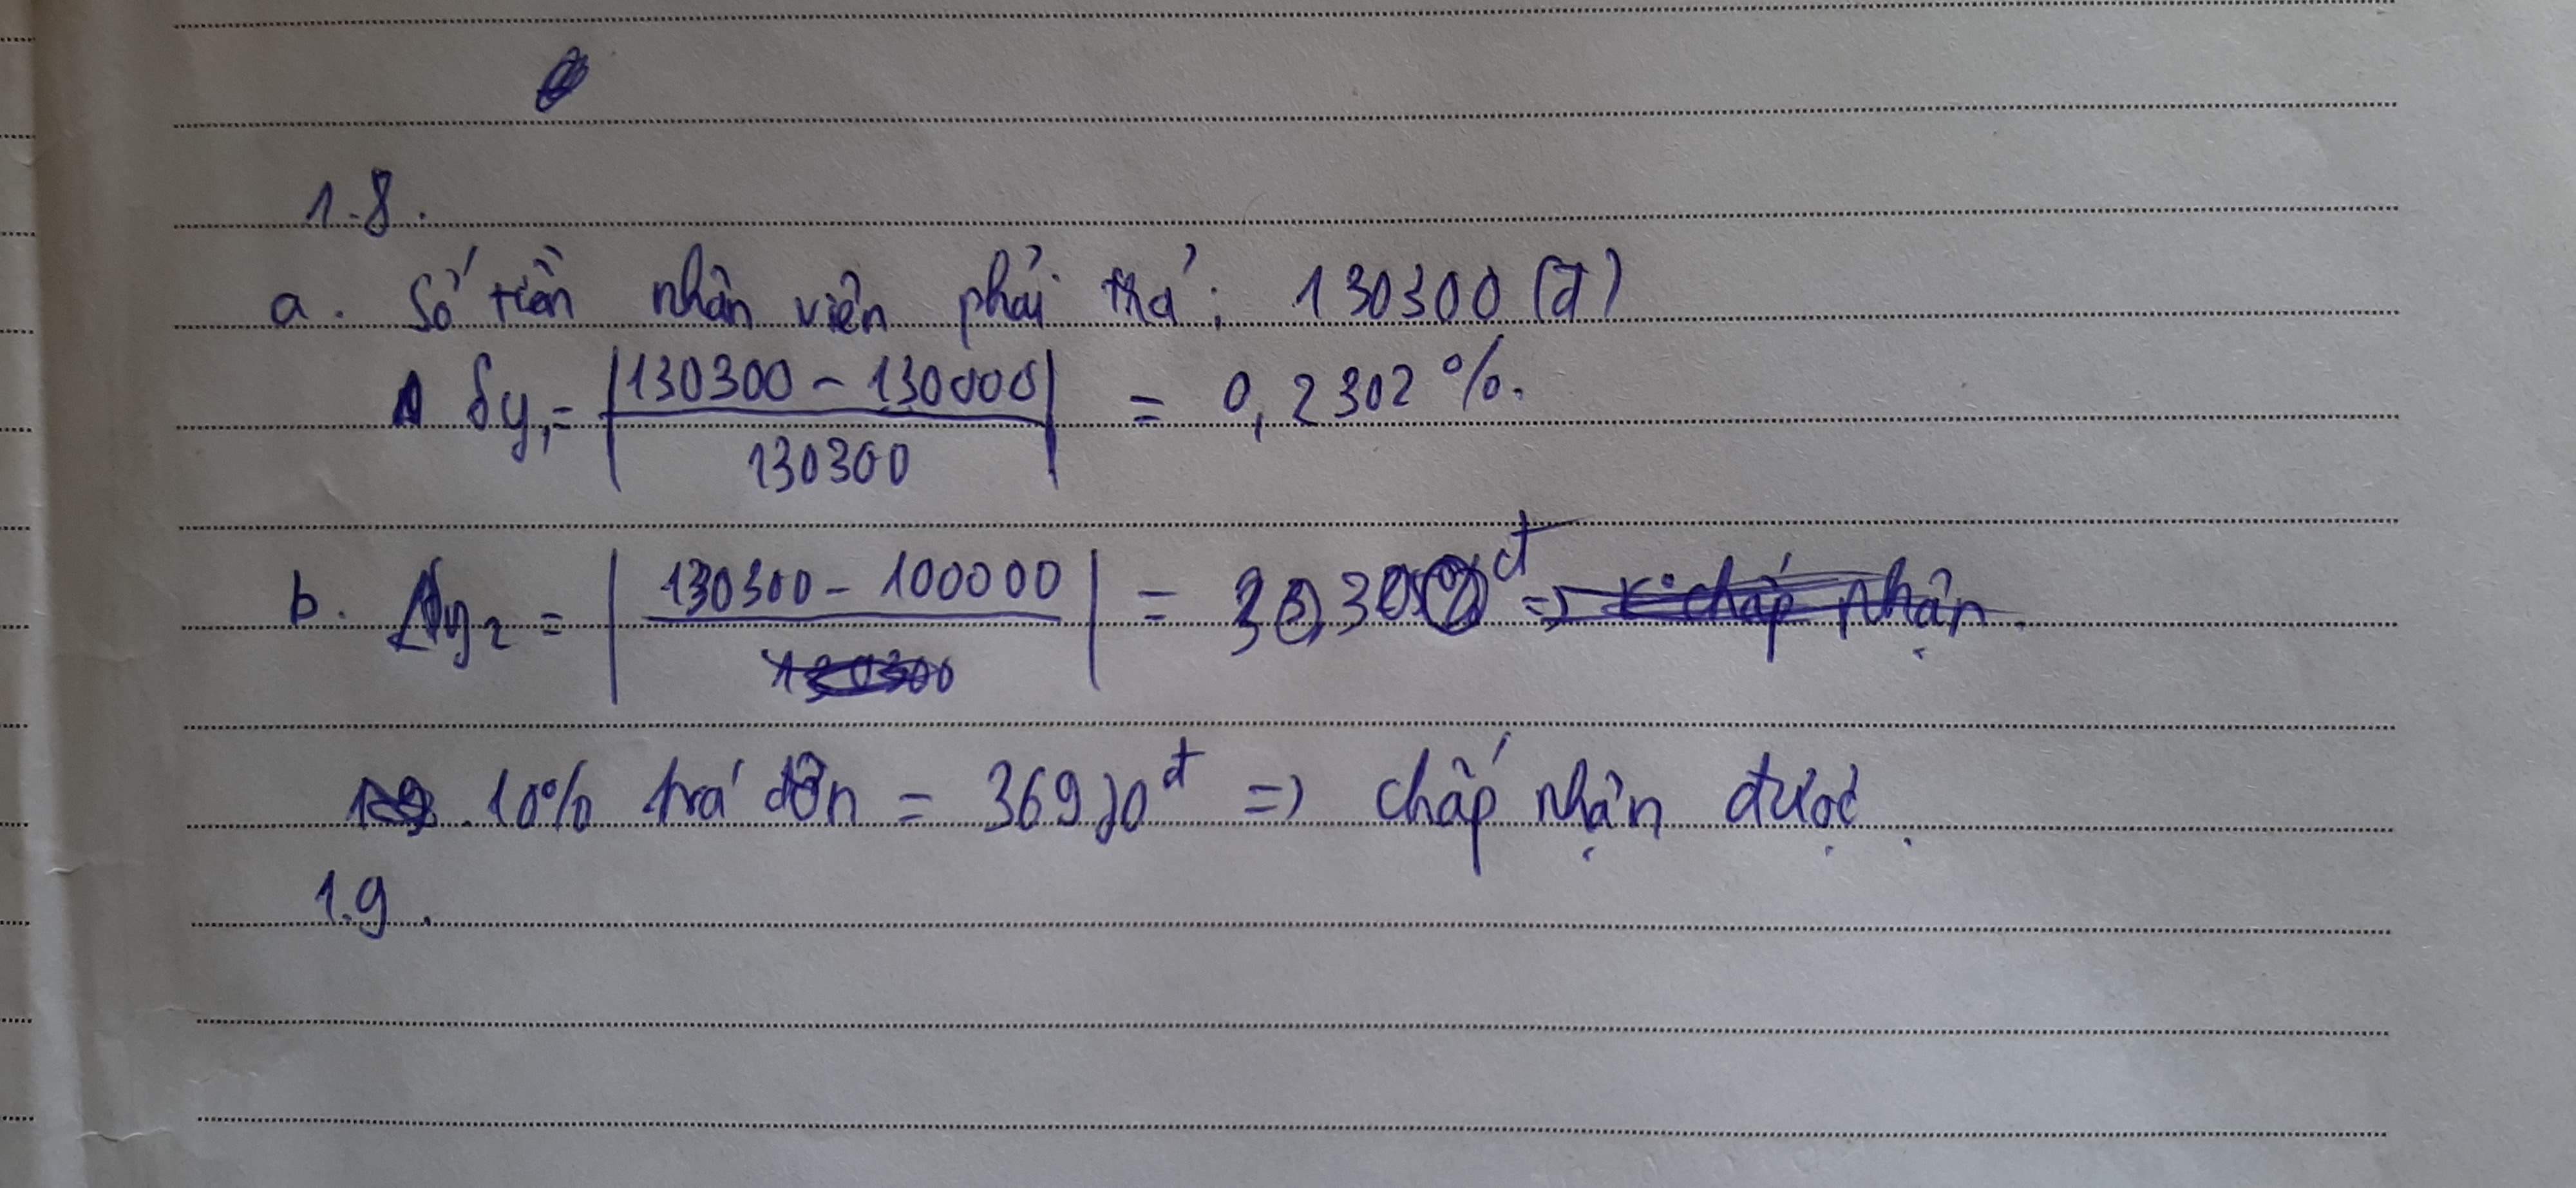 1.8.
a. Số tiền nhân viên phải trả: 130300 (đ)
δy₁ = |130300 - 130000 / 130300| = 0,2302 %.
b. Δy₂ = |130300 - 100000| = 30300 đ
10% hoá đơn = 36970 đ => chấp nhận được.
1.9.